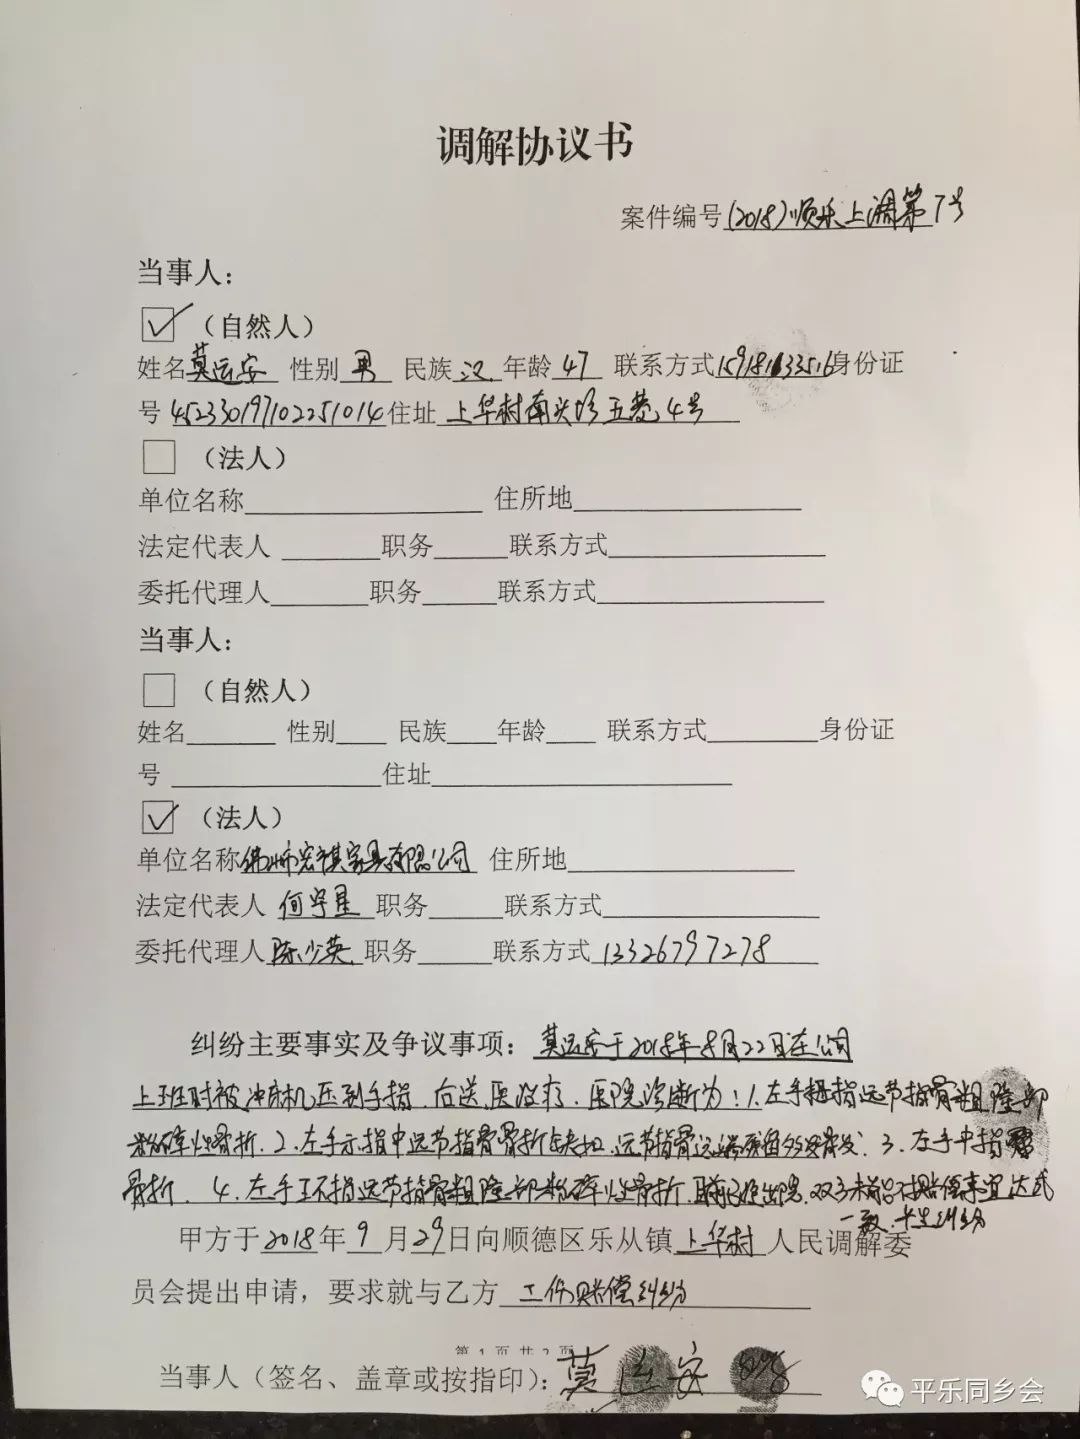 调解协议书
案件编号(2018)顺乐上调第7号
当事人：
（自然人）
姓名莫运安 性别 男 民族 汉 年龄 47 联系方式15918133516身份证
号 452330197102251014 住址 上华村南兴坊五巷4号
（法人）
单位名称 住所地
法定代表人 职务 联系方式
委托代理人 职务 联系方式
当事人：
（自然人）
姓名 性别 民族 年龄 联系方式 身份证
号 住址
（法人）
单位名称佛山市宏祺家具有限公司 住所地
法定代表人 何守星 职务 联系方式
委托代理人 陈少英 职务 联系方式 13326797278
纠纷主要事实及争议事项：莫运安于2018年8月22日在公司
上班时被冲床机压到手指，后送医治疗，医院诊断为：1.左手拇指远节指骨粗隆部
粉碎性骨折．2．左手示指中远节指骨骨折缺损，远节指骨远端残留多发骨片．3．左手中指
骨折．4．左手环指远节指骨粗隆部粉碎性骨折．目前已经出院，双方未能就赔偿事宜达成
一致，产生纠纷
甲方于2018年 9 月29日向顺德区乐从镇 上华村 人民调解委
员会提出申请，要求就与乙方 工伤赔偿纠纷
第 1 页 共 2 页
当事人（签名、盖章或按指印）：莫运安
平乐同乡会